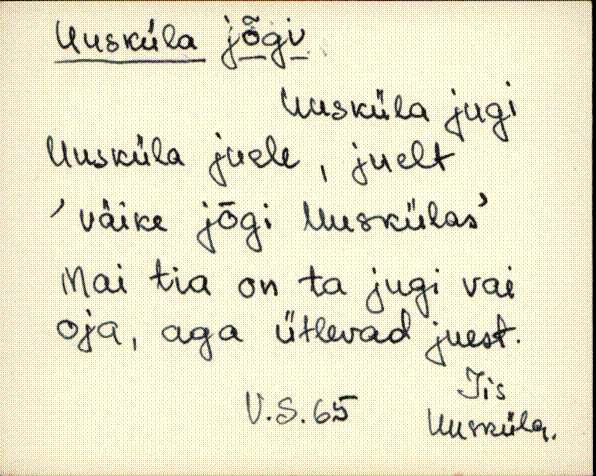 Uusküla jõgi
Uusküla jugi
Uusküla juele, juelt
'väike jõgi Uuskülas'
Mai tia on ta jugi vai
oja, aga ütlevad juest.
V.S.65
Iis
Uusküla.